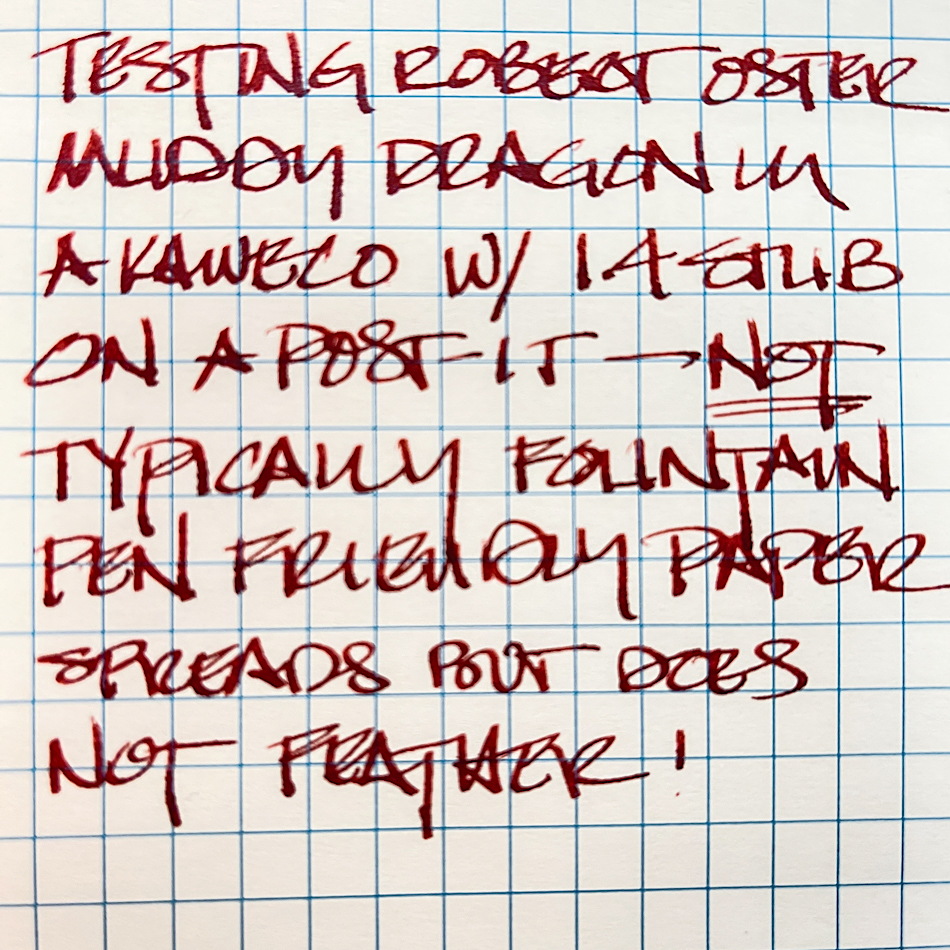 TESTING ROBERT OSTER
MUDDY DRAGON IN
A KAWECO W/ 14 STUB
ON A POST-IT — NOT
TYPICALLY FOUNTAIN
PEN FRIENDLY PAPER
SPREADS BUT DOES
NOT FEATHER!